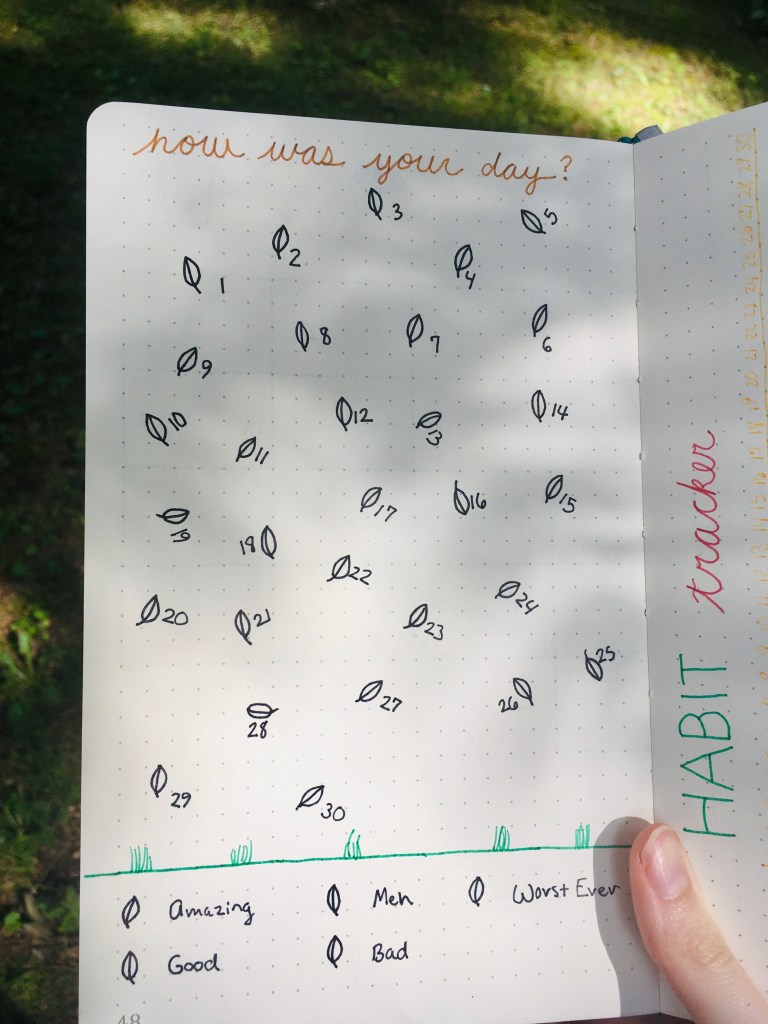 how was your day?
3
5
2
4
1
8
7
6
9
12
14
10
13
11
17
16
15
19
18
22
24
20
21
23
25
27
26
28
29
30
Amazing
Meh
Worst Ever
Good
Bad
48
HABIT tracker